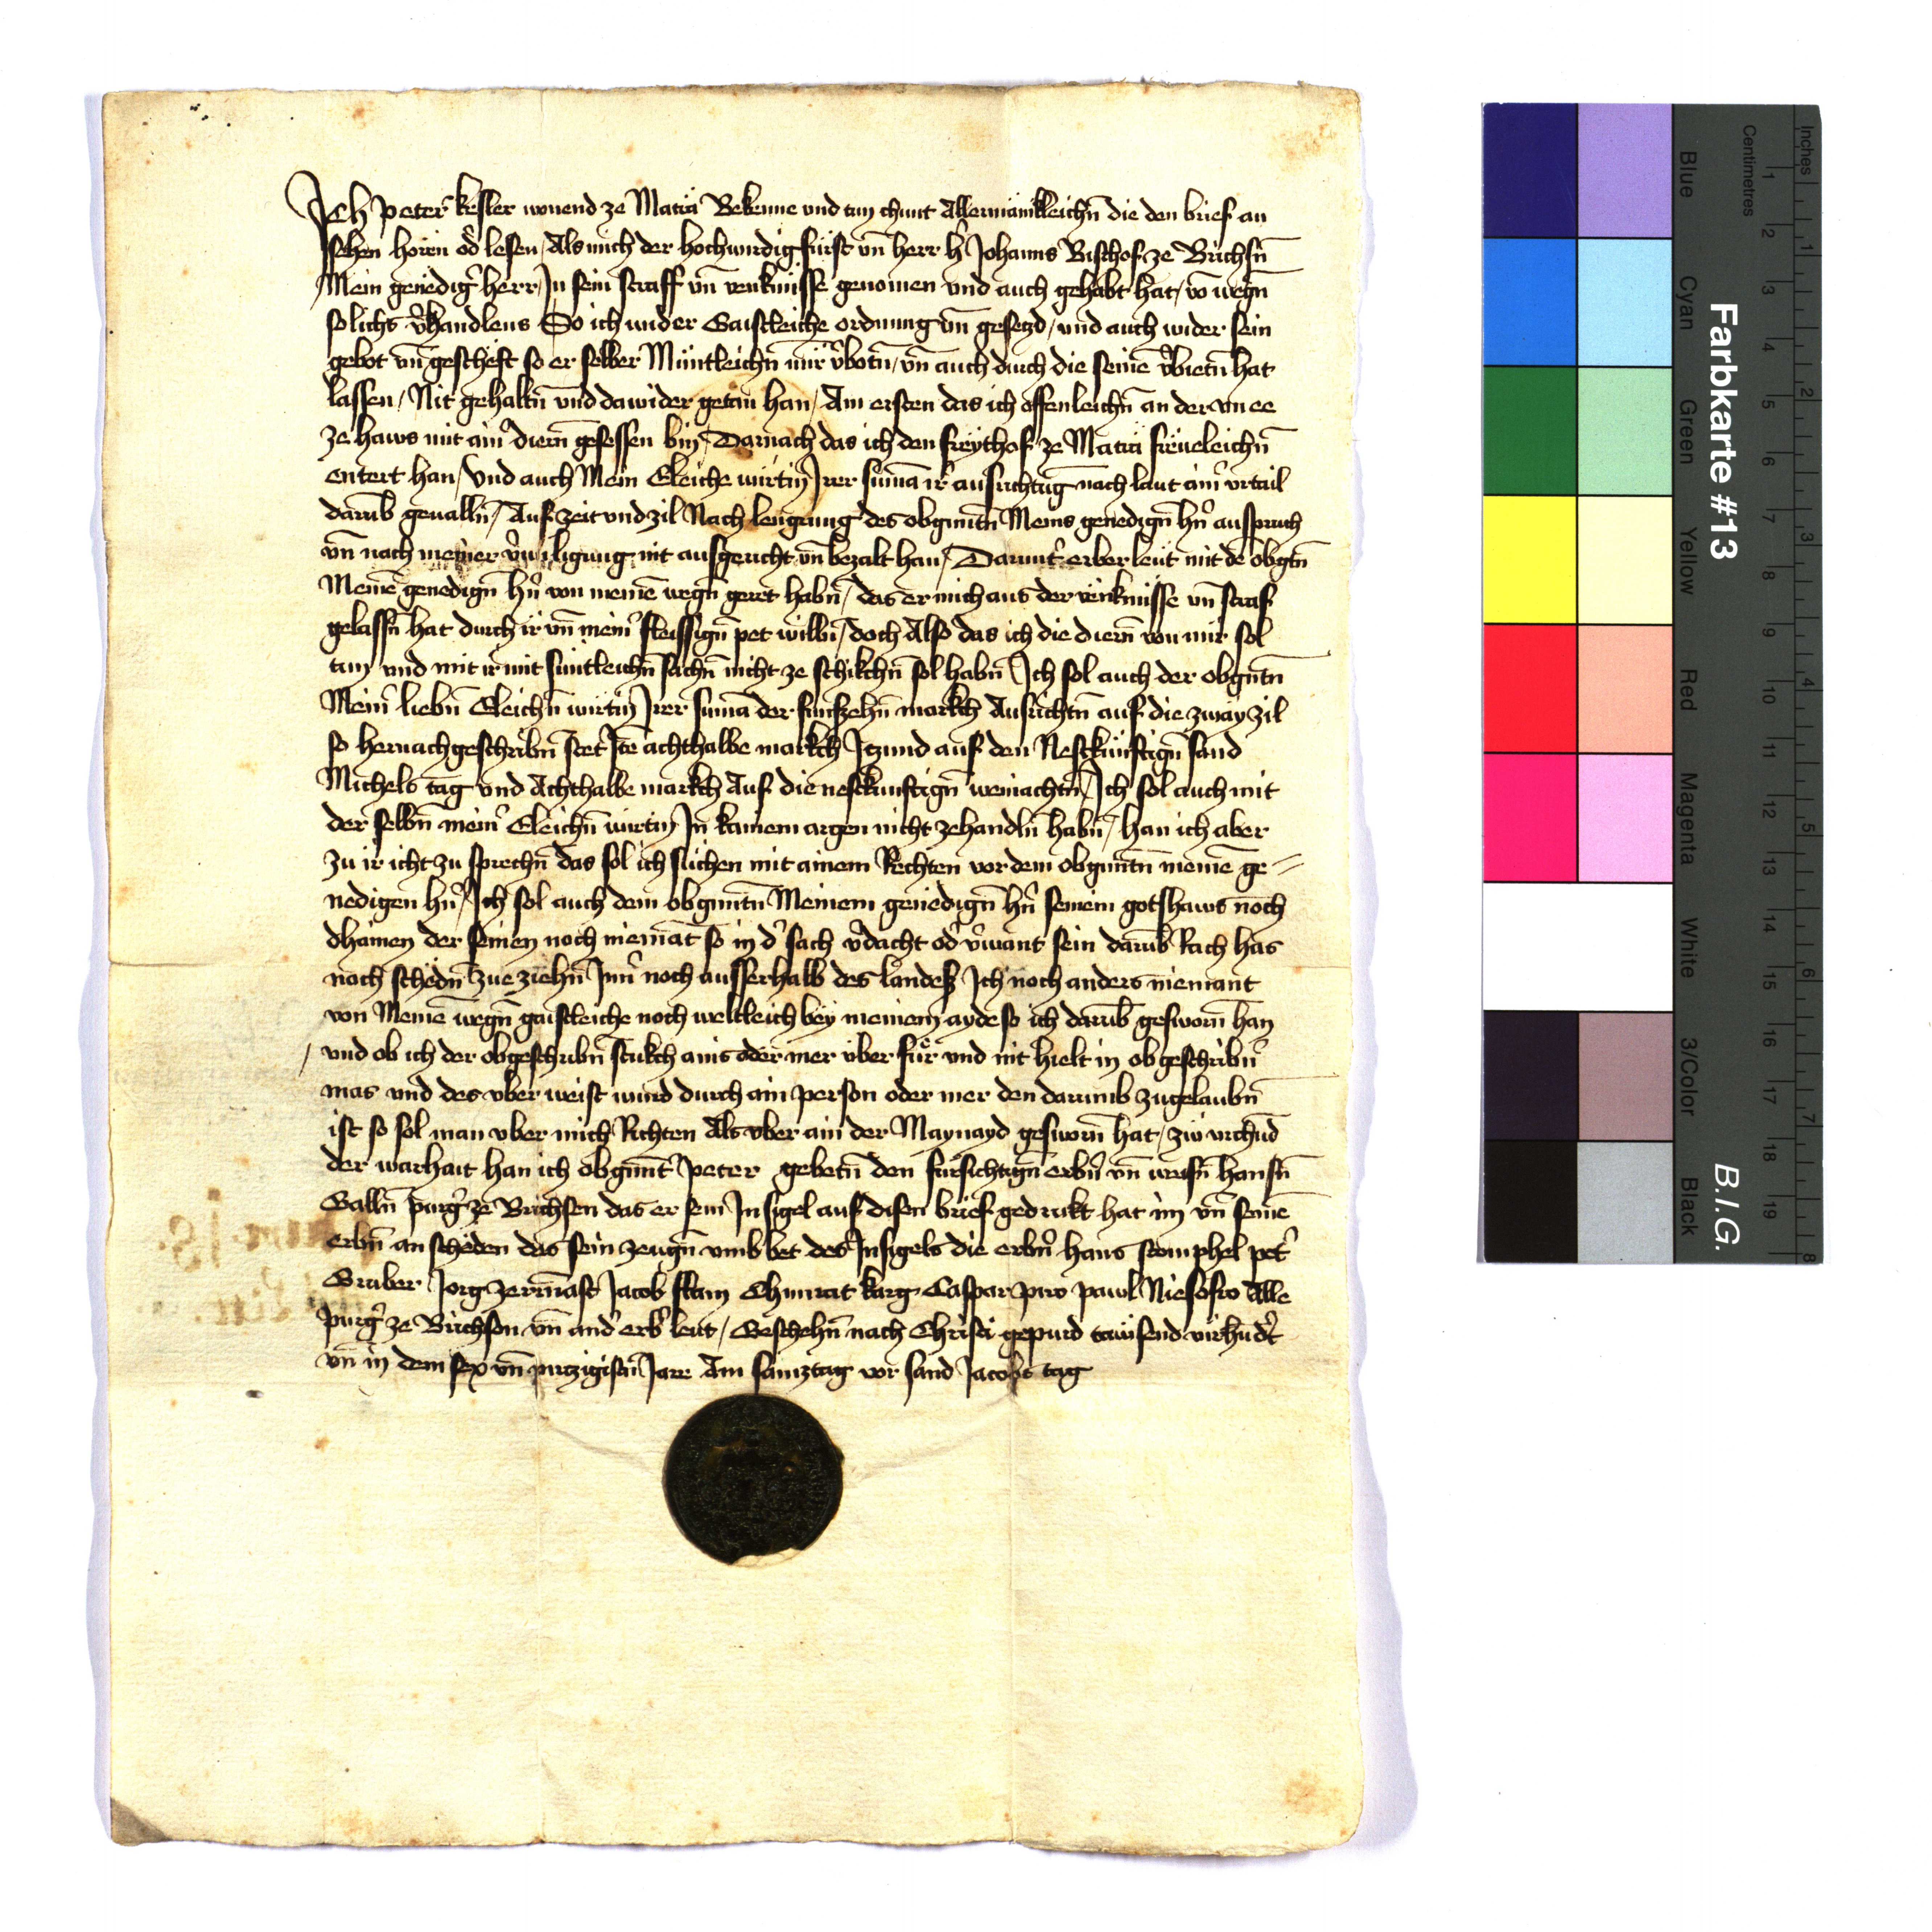 Ich Peter kesler wonend ze Maträ Bekenne vnd tun chunt Allermäinkleichn̄ die den brief an
sehen hörin od̕ lesen / Als mich der hochwirdig fürst vn̄ herr h̕ Johanns Bischof ze Brichsn̄
Mein genëdig̕ herr In sein straff vn̄ venkniisse genomen vnd auch gehabt hat / vō wegn̄
solichs v̕handlens So ich wider Gaistleiche ordnung vn̄ gesetzd / vnd auch wider sein
gebot vn̄ geschëft so er selber Müntleichn̄ mir v̕botn̄ / vn̄ auch durch die seinē v̕bietn̄ hat
lassen / Nit gehaltn̄ vnd dawider getan han / Am ersten das ich offenleichn̄ an der vn ee
ze haws mit ain̕ diern gesessen bin / Darnach das ich den freythof ze Maträ frëueleichn̄
entert han / Vnd auch Mein Eleiche wirtin Irer sum̄a ir̕ ausrichtūg nach laut ain̕ vrtail
darūb geualln̄ / Auf zeit vnd zil Nach lengrung des obgnntn̄ Meins genedign̄ hn̕ ausspruch
vn̄ nach meiner v̕wiligung nit ausgericht vn̄ bezalt han / Darunt̕ erber leut mit dē obgtn̄
Meinē genedign̄ hn̕ von meinē wegn̄ geret habn̄ / das er mich aus der vënknüsse vn̄ straf
gelassn̄ hat durch ir vn̄ mein̕ fleissign̄ pet willn̄ / doch Also das ich die diern von mir sol
tun vnd mit ir mit süntleichn̄ sachn̄ nicht ze schikchn̄ sol habn̄ Ich sol auch der obgntn̄
Mein̕ liebn̄ Eleichn̄ wirtin Irer sum̄a der fünfzehn̄ markch Ausrichtn̄ auf die zway zil
so hernach geschribn̄ stet Itē achthalbe markch Itzund auf den Nestkünftign̄ sand
Michels tag vnd Achthalbe markch Auf die nestkunftign̄ weinachtn̄ / Ich sol auch mit
der selbn̄ mein̕ Eleichn̄ wirtin In kainem argen nicht zehandln̄ habn̄ / han ich aber
zu ir icht zu sprechn̄ das sol ich süchen mit ainem Rechten vor dem obgnntn̄ meinē ge=
nedigen hn̕ / Ich sol auch dem obgnntn̄ Meinem genëdign̄ hn̕ seinem gotshaws noch
dhainen der seinen noch niemāt so in d̕ sach v̕dacht od̕ v̕want sein darūb Rach has
noch schëdn̄ zue ziehn̄ Inn̕ noch ausserhalb des landes Ich noch anders niemant
von Meinē wegn̄ gaistleiche noch weltleich bëy meinem ayde so ich darūb gesworn̄ han
/ vnd ob ich der obgeschribn̄ stukch ains oder mer über für vnd nit hielt in obgeschribn̕
mas vnd des vber weist wurd durch ain person oder mer den darumb zugelaubn̄
ist so sol man vber mich Richten Als vber ain der Maynayd gesworn̄ hat / zw vrchūd
der warhait han ich obgnnt̕ Peter gebetn̄ den fürsichtign̄ erbn̕ vn̄ weisn̄ hansn̄
Galln̄ purg̕ ze Brichsen das er sein Insigel auf disen brief gedrukt hat im vn̄ seinē
erbn̄ an scheden das sein zeugn̄ vmb bet des Insigels die erbn̕ hans stomphel pet̕
Gruber Jorg zermast Jacob Chunrat karg Caspar paul Alle
purg̕ ze Brichsen vn̄ and̕ erb̕ leut / Geschehn̄ nach Christi gepurd tawsend virhūd̕t
vn̄ in dem sex vn̄ virzigistn̄ Jare Am samztag vor sand Jacobs tag
Farbkarte #13
B.I.G.
Inches
Centimetres
Blue
Cyan
Green
Yellow
Red
Magenta
White
3/Color
Black
1 2 3 4 5 6 7 8 9 10 11 12 13 14 15 16 17 18 19
1 2 3 4 5 6 7 8